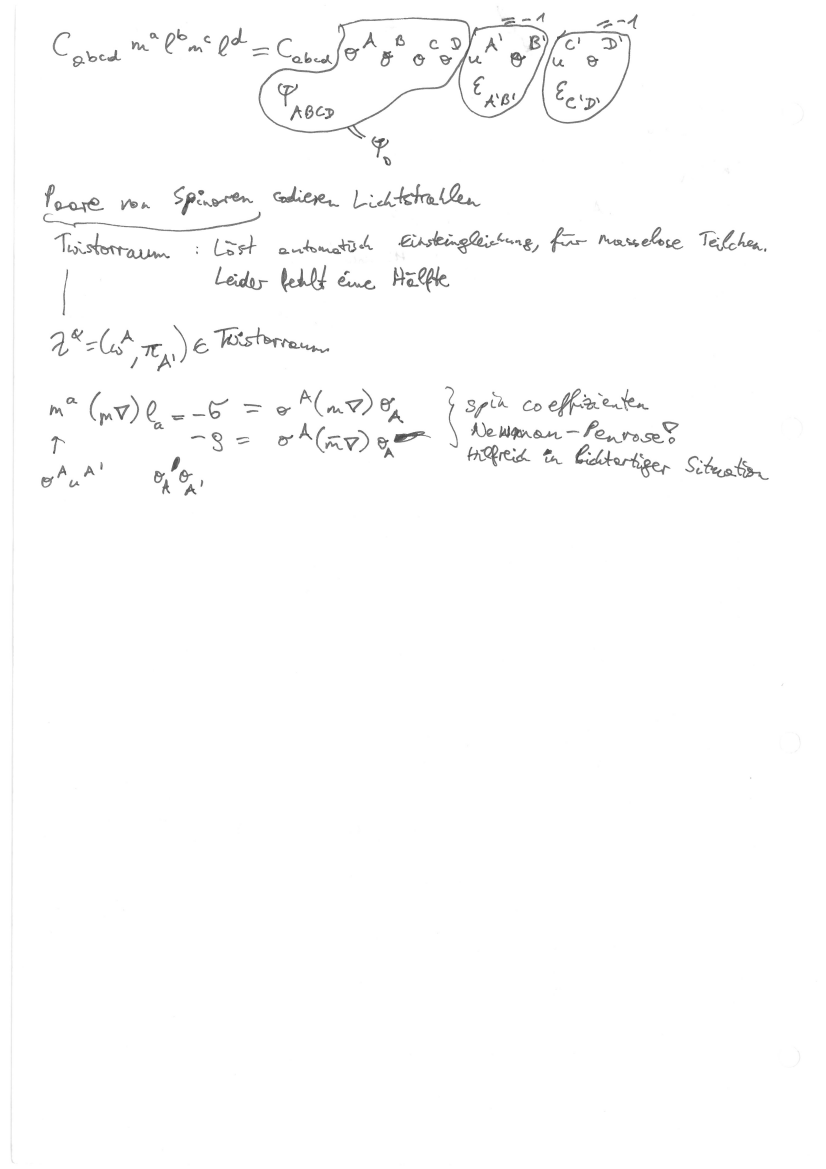 C_{abcd} m^a l^b m^c l^d = C_{abcd} o^A o^B o^C o^D ι^{A'} o^{B'} ι^{C'} o^{D'}
=-1 =-1
Ψ_{ABCD} ε_{A'B'} ε_{C'D'}
= Ψ_0
Paare von Spinoren codieren Lichtstrahlen
Twistorraum : Löst automatisch Einsteingleichung, für masselose Teilchen.
Leider fehlt eine Hälfte
Z^α = (ω^A, π_{A'}) ∈ Twistorraum
m^a (m∇) l_a = -σ = o^A (m∇) o_A } spin coeffizienten
-ρ = o^A (m̄∇) o_A Newman-Penrose!
↑ Hilfreich in lichtartiger Situation
o^A ι^{A'} o_A o_{A'}